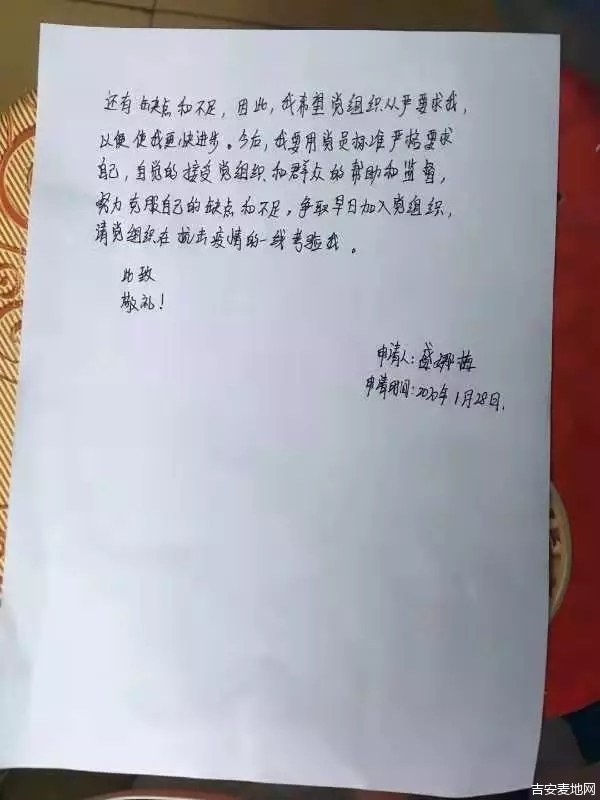 还有缺点和不足，因此，我希望党组织从严要求我，
以便使我更快进步。今后，我要用党员标准严格要求
自己，自觉的接受党组织和群众的帮助和监督，
努力克服自己的缺点和不足，争取早日加入党组织，
请党组织在抗击疫情的一线考验我。
此致
敬礼！
申请人：盛娜梅
申请时间：2020年1月28日.
吉安麦地网